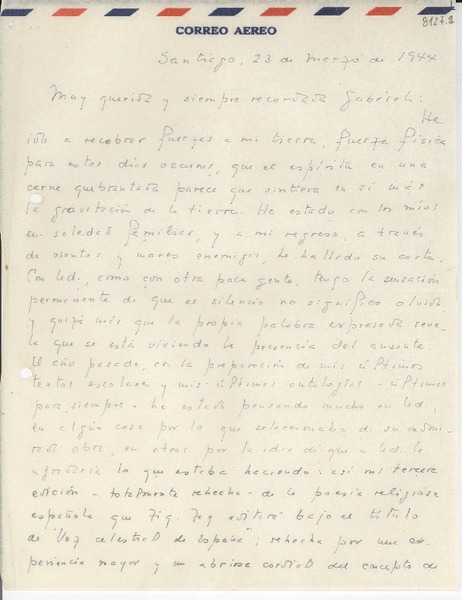 CORREO AEREO
8127.2
Santiago, 23 de marzo de 1944
Muy querida y siempre recordada Gabriela:
He
ido a recobrar fuerzas a mi tierra, fuerza física
para estos días oscuros, que el espíritu en una
carne quebrantada parece que sintiera en sí más
la gravitación de la tierra. He estado con los míos
en soledad familiar, y a mi regreso, a través
de vientos y mares enemigos, he hallado su carta.
Con Ud., como con otra poca gente, tengo la sensación
permanente de que el silencio no significa olvido
y quizá más que la propia palabra expresada reve-
la que se está viviendo la presencia del ausente.
El año pasado, con la preparación de mis últimos
textos escolares y mis últimas antologías - últimas
para siempre - he estado pensando mucho en Ud.,
en algún caso por lo que seleccionaba de su admi-
rable obra, en otros por la idea de que a Ud. le
agradaría lo que estaba haciendo: así mi tercera
edición - totalmente rehecha - de la poesía religiosa
española que Zig-Zag editará bajo el título
de "Voz celestial de España"; rehecha por una ex-
periencia mayor y un abrirse cordial del concepto de